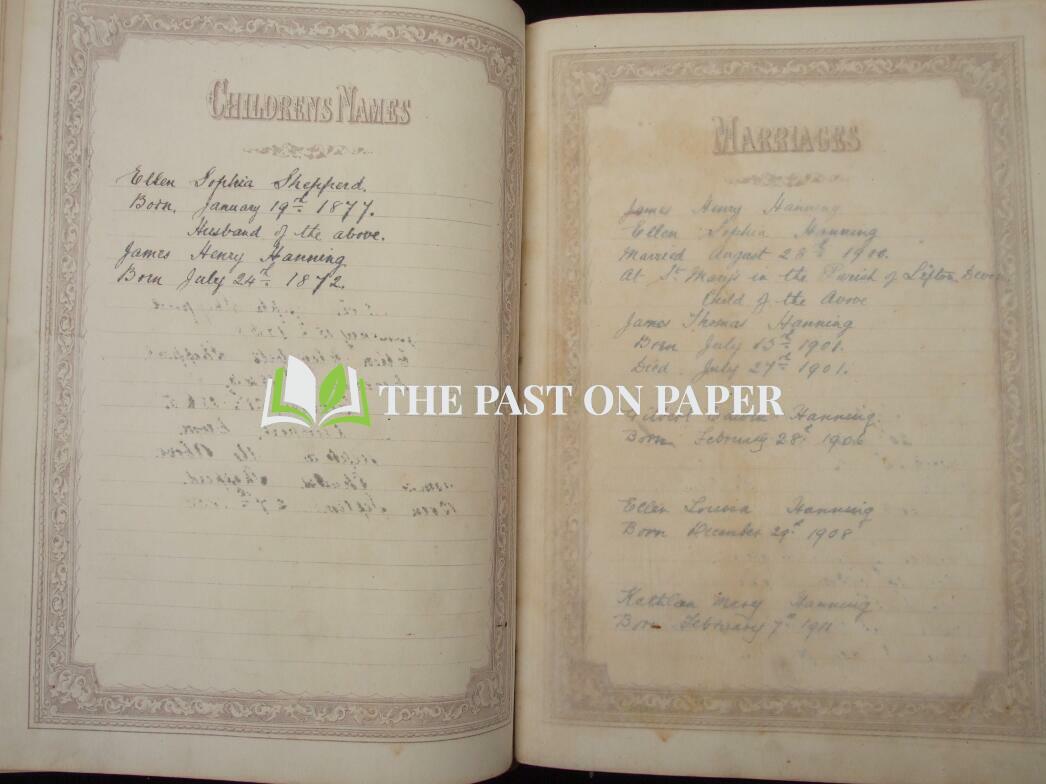 CHILDRENS NAMES
Ellen Sophia Shepperd.
Born. January 19th 1877.
Husband of the above.
James Henry Hanning.
Born July 24th 1872.
THE PAST ON PAPER
MARRIAGES
James Henry Hanning
Ellen Sophia Hanning
Married August 28th 1900.
At St Mary's in the Parish of Lifton Devon
Child of the Above
James Thomas Hanning
Born July 15th 1901.
Died July 27th 1901.
Hanning.
Born February 28th 1906
Ellen Louisa Hanning
Born December 29th 1908
Kathleen Mary Hanning
Born February 7th 1911